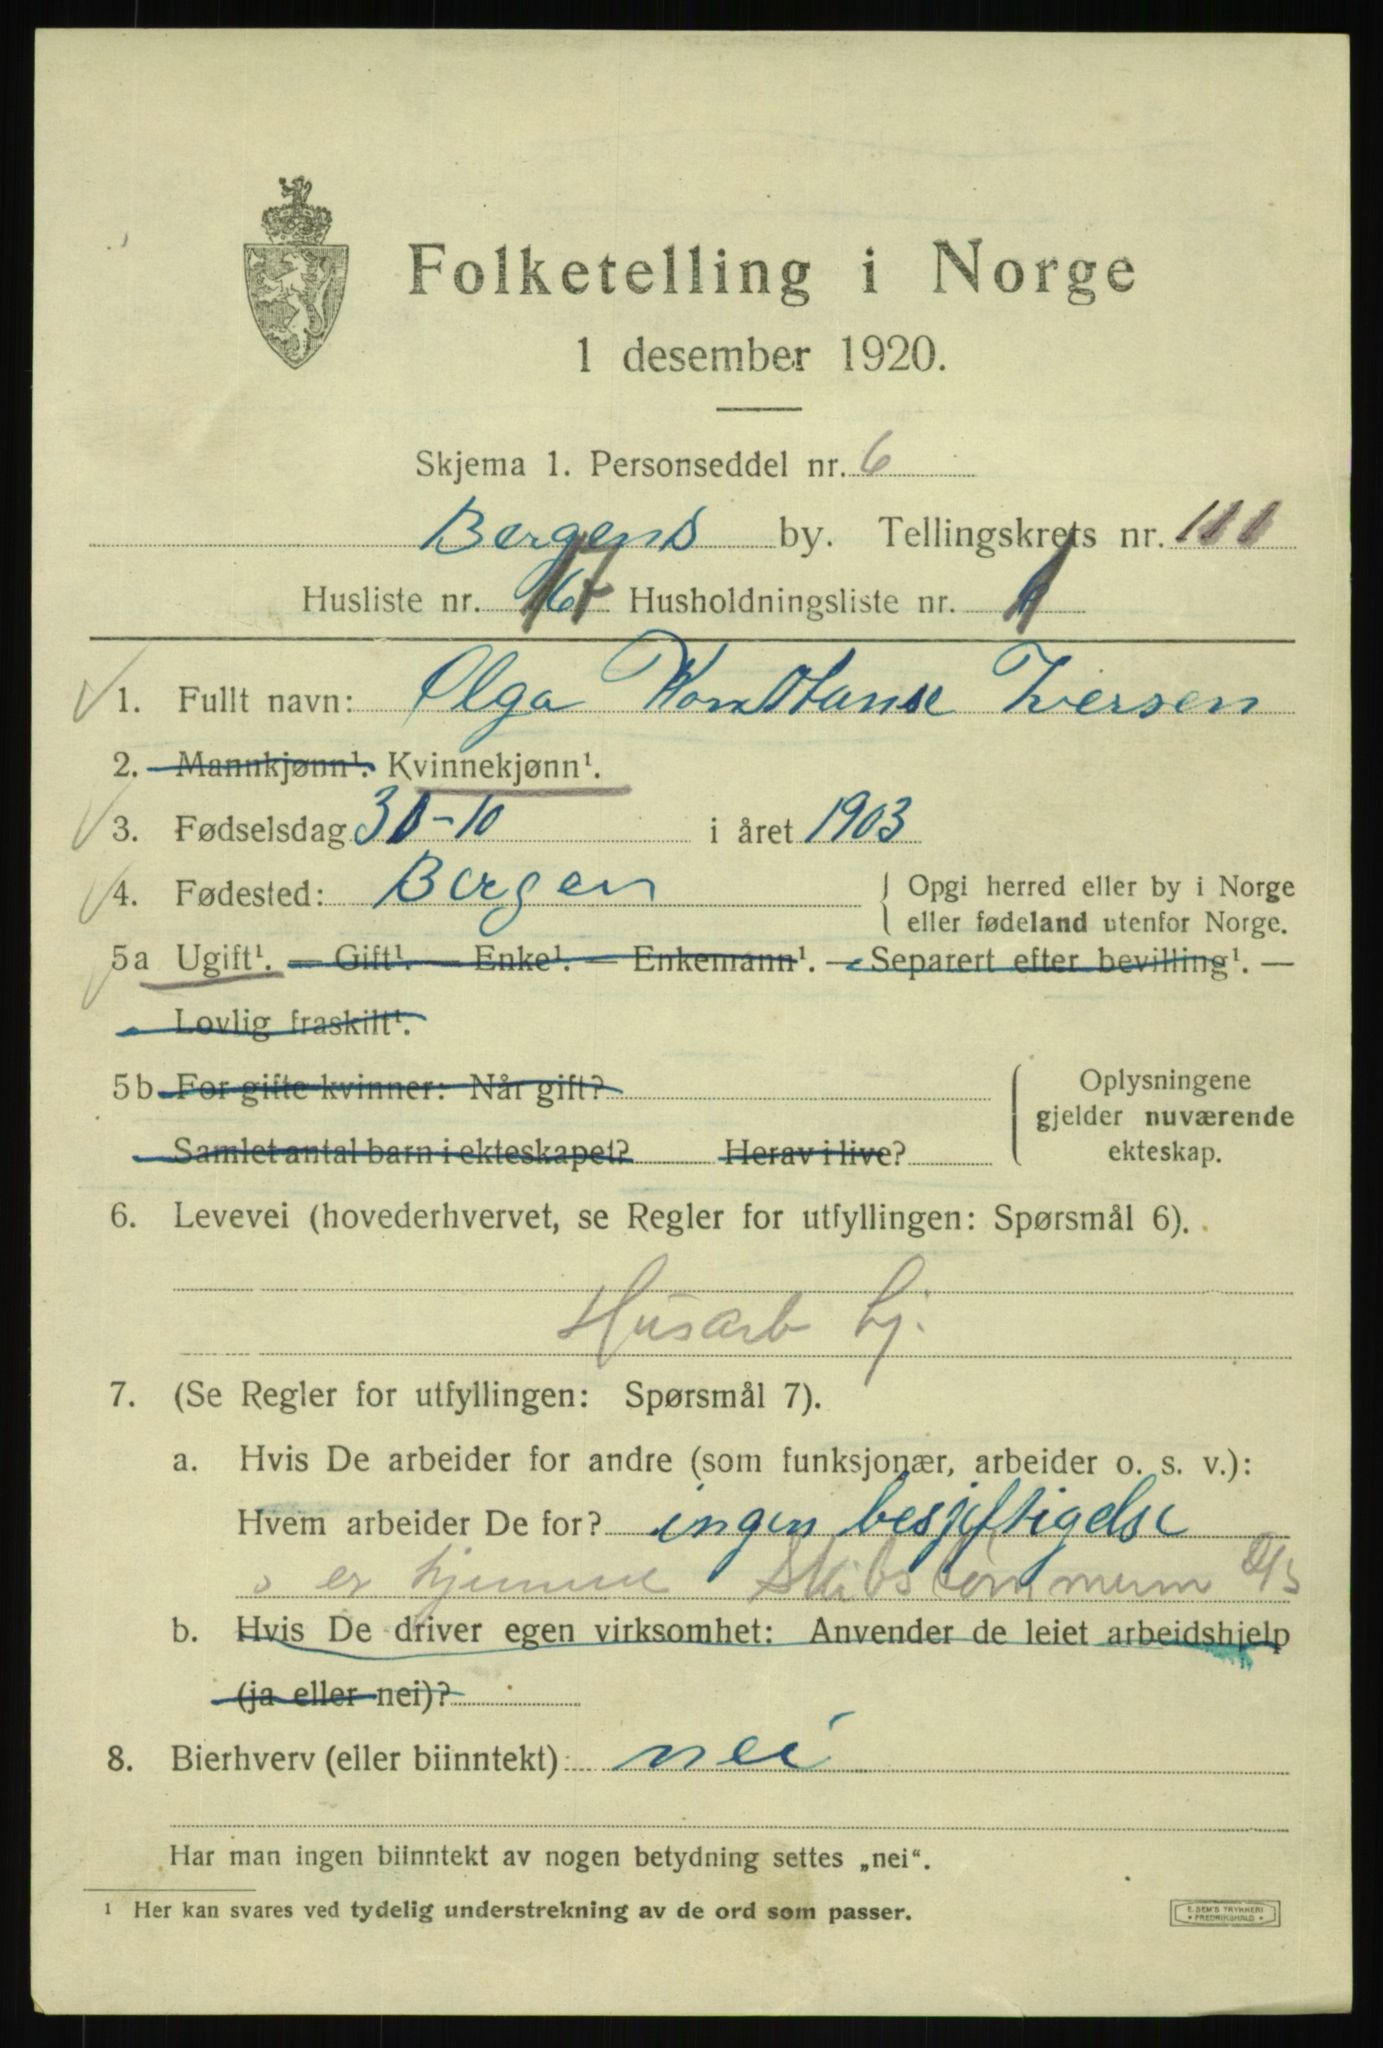 Folketelling i Norge
1 desember 1920.
Skjema 1. Personseddel nr. 6
Bergens by. Tellingskrets nr. 111
Husliste nr. 17 Husholdningsliste nr. 1
1. Fullt navn: Olga Konstanse Iversen
2. Mannkjønn¹. Kvinnekjønn¹.
3. Fødselsdag 30-10 i året 1903
4. Fødested: Bergen { Opgi herred eller by i Norge
eller fødeland utenfor Norge.
5a Ugift¹. — Gift¹. — Enke¹. — Enkemann¹. — Separert efter bevilling¹. —
Lovlig fraskilt¹.
5b For gifte kvinner: Når gift?
Samlet antal barn i ekteskapet? Herav i live?
Oplysningene
gjelder nuværende
ekteskap.
6. Levevei (hovederhvervet, se Regler for utfyllingen: Spørsmål 6).
Husarb hj.
7. (Se Regler for utfyllingen: Spørsmål 7).
a. Hvis De arbeider for andre (som funksjonær, arbeider o. s. v.):
Hvem arbeider De for? ingen besjeftigelse
er hjemme Skibstømmerm
b. Hvis De driver egen virksomhet: Anvender de leiet arbeidshjelp
(ja eller nei)?
8. Bierhverv (eller biinntekt) nei
Har man ingen biinntekt av nogen betydning settes „nei“.
¹ Her kan svares ved tydelig understrekning av de ord som passer.
E. SEM'S TRYKKERI
• FREDRIKSHALD •